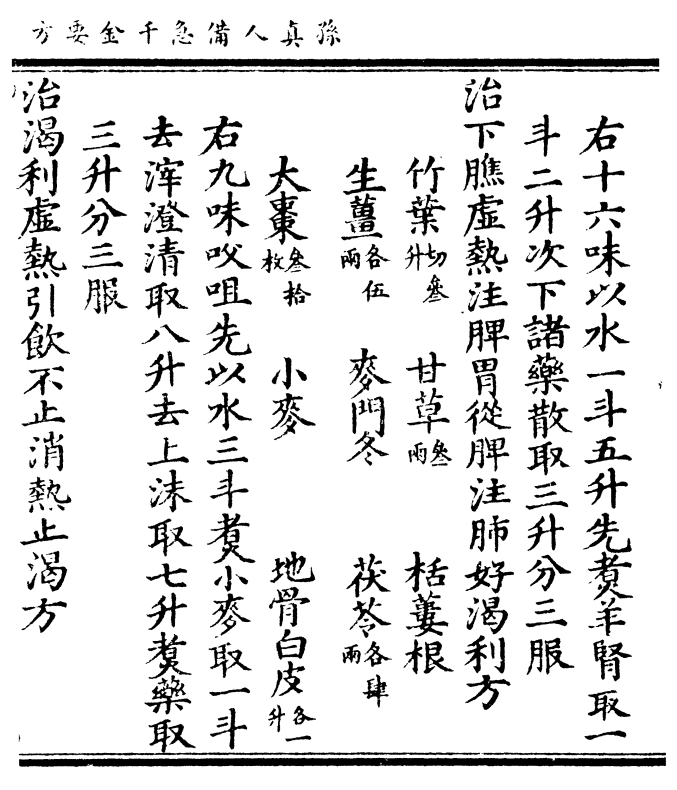 孫真人備急千金要方
右十六味以水一斗五升先煑羊腎取一
斗二升次下諸藥散取三升分三服
治下膲虛熱注脾胃從脾注肺好渴利方
竹葉切叄升 甘草叄兩 栝蔞根
生薑各伍兩 麥門冬 茯苓各肆兩
大棗叄拾枚 小麥 地骨白皮各一升
右九味㕮咀先以水三斗煑小麥取一斗
去滓澄清取八升去上沫取七升煑藥取
三升分三服
治渴利虛熱引飲不止消熱止渴方